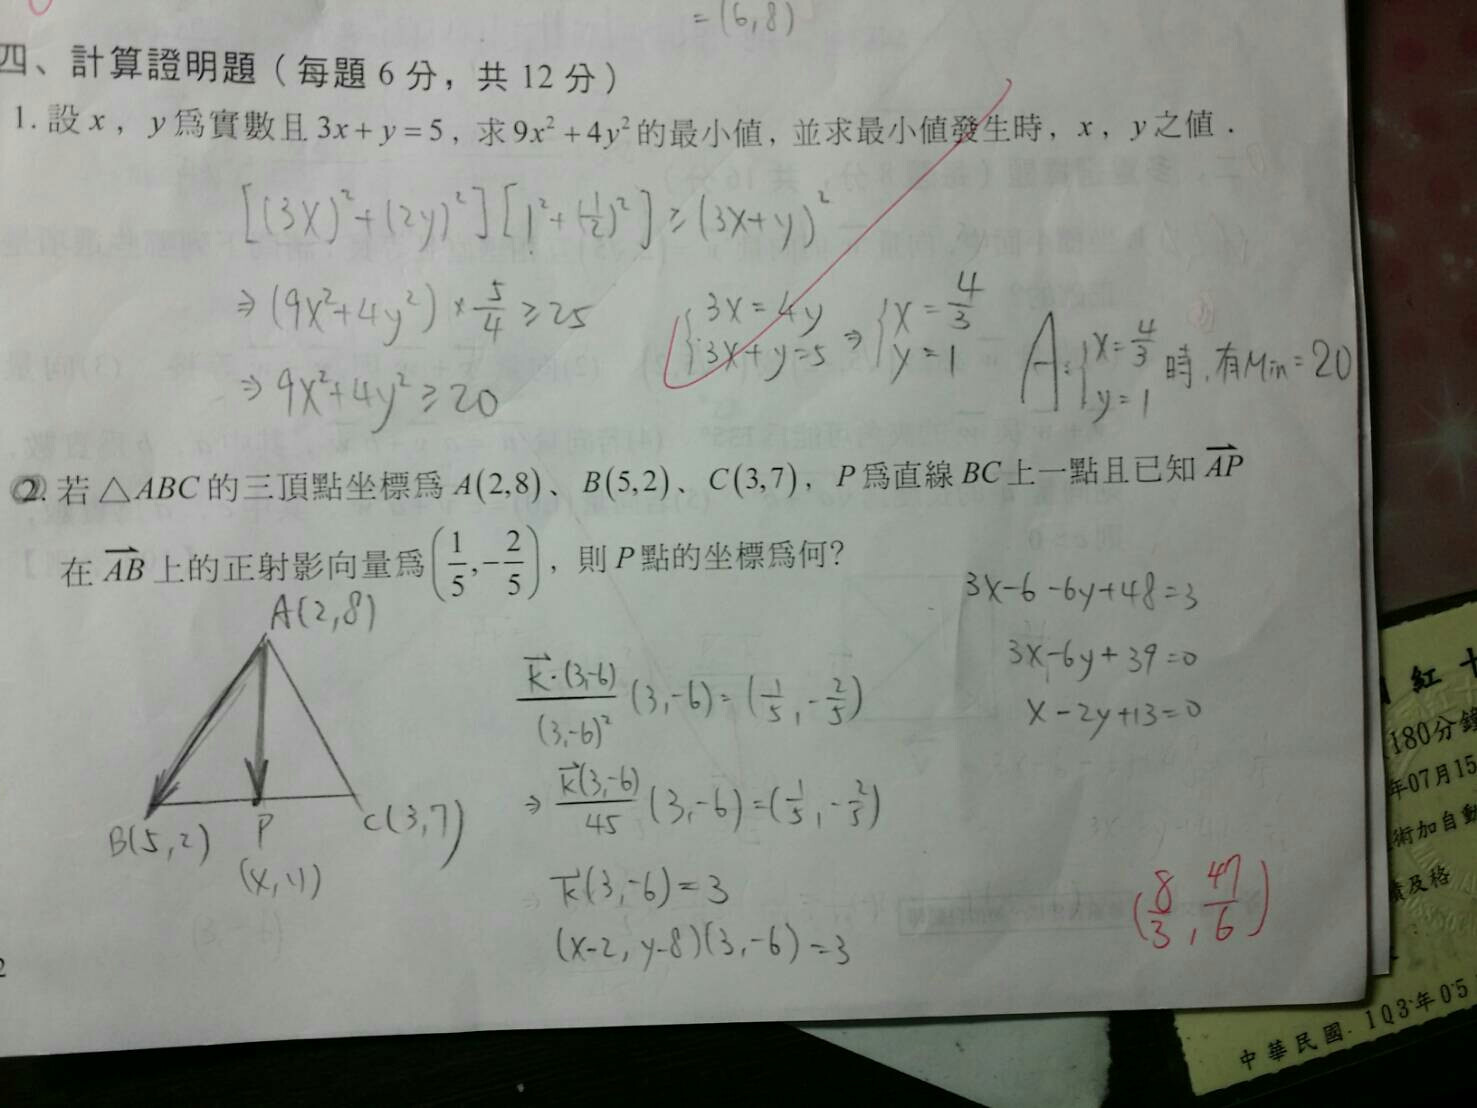 = (6,8)
四、計算證明題（每題 6 分，共 12 分）
1. 設 x，y 爲實數且 3x+y=5，求 9x²+4y² 的最小值，並求最小值發生時，x，y 之值．
[(3x)²+(2y)²][1²+(1/2)²] ≥ (3x+y)²
⇒ (9x²+4y²) × 5/4 ≥ 25
⇒ 9x²+4y² ≥ 20
{3x=4y
{3x+y=5 ⇒ {x=4/3
{y=1
A: {x=4/3
{y=1 時, 有Min=20
2. 若 △ABC 的三頂點坐標爲 A(2,8)、B(5,2)、C(3,7)，P 爲直線 BC 上一點且已知 \overrightarrow{AP}
在 \overrightarrow{AB} 上的正射影向量爲 (1/5, -2/5)，則 P 點的坐標爲何?
A(2,8)
B(5,2)
P
(x,y)
C(3,7)
\overrightarrow{k}·(3,-6)/(3,-6)² (3,-6) = (1/5, -2/5)
⇒ \overrightarrow{k}(3,-6)/45 (3,-6) = (1/5, -2/5)
\overrightarrow{k}(3,-6) = 3
(x-2, y-8)(3,-6) = 3
3x-6-6y+48=3
3x-6y+39=0
x-2y+13=0
(8/3, 47/6)
紅十
180分鐘
年07月15
術加自動
績及格
中華民國 103年05